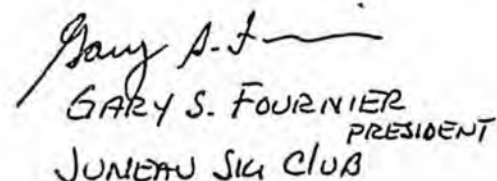 Gary S. F
GARY S. FOURNIER
PRESIDENT
JUNEAU SKI CLUB